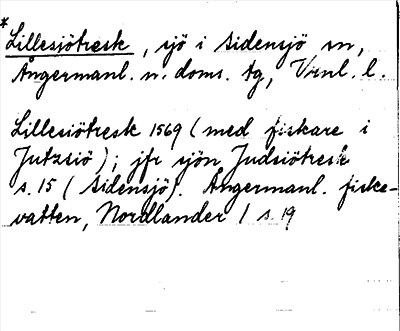 *Lillesjötresk, sjö i Sidensjö sn,
Ångermanl. n. doms. tg, Vrnl. l.
Lillesiötresk 1569 (med fiskare i
Jutzsiö); jfr sjön Judsiötresk
s. 15 (Sidensjö). Ångermanl. fiske-
vatten, Nordlander / s. 19